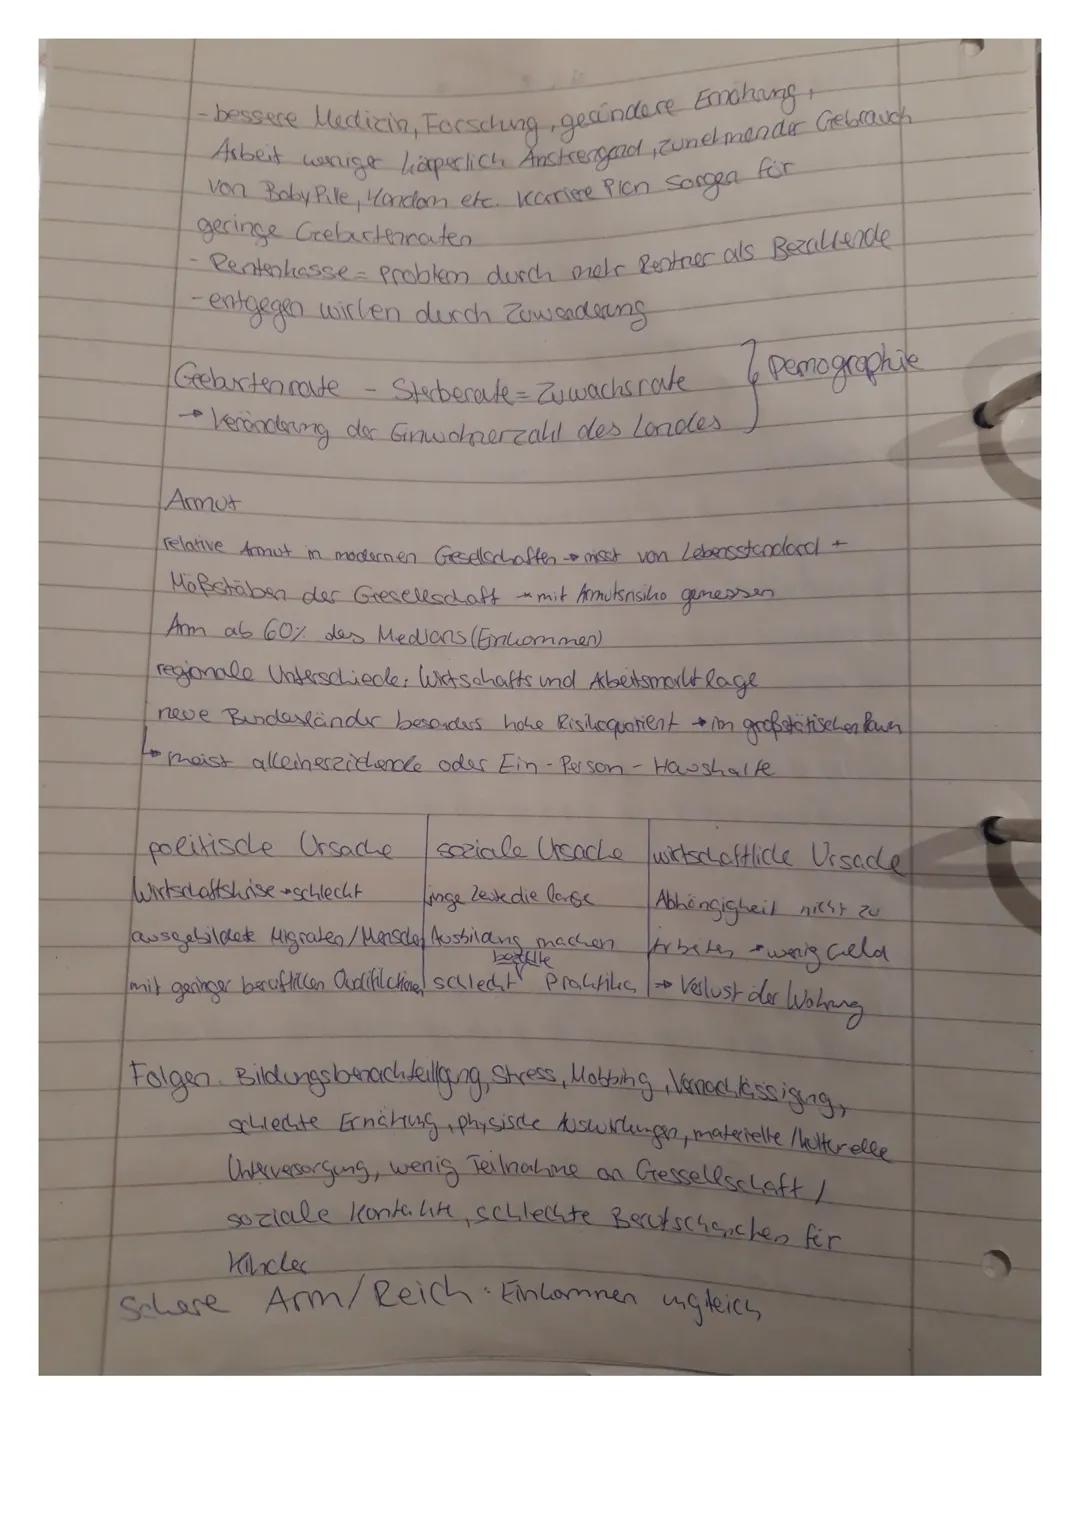 - bessere Medizin, Forschung, gesündere Ernährung,
Arbeit weniger körperlich Anstrengend, zunehmender Gebrauch
von BabyPille, Kondom etc. Karriere Plan sorgen für
geringe Geburtenraten
- Rentenkasse = problem durch mehr Rentner als Bezahlende
- entgegen wirken durch Zuwanderung
Geburtenrate - Sterberate = Zuwachsrate } Demographie
→ Veränderung der Einwohnerzahl des Landes
Armut
relative Armut in modernen Gesellschaften → misst von Lebensstandard +
Maßstäben der Gesellschaft → mit Armutsrisiko gemessen
Arm ab 60% des Medians (Einkommen)
regionale Unterschiede: Wirtschafts und Arbeitsmarktlage
neue Bundesländer besonders hohe Risikoquotient → im großstätischen Raum
↳ meist alleinerziehende oder Ein-Person-Haushalte
politische Ursache | soziale Ursache | wirtschaftliche Ursache
Wirtschaftskrise → schlecht | junge Leute die lange | Abhängigkeit nicht zu
ausgebildete Migraten/Menschen | Ausbildung machen | Arbeiten → wenig Geld
mit geringer beruflichen Qualifikation | schlecht bezahlte Praktika | → Verlust der Wohnung
Folgen: Bildungsbenachteiligung, Stress, Mobbing, Vernachlässigung,
schlechte Ernährung, physische Auswirkungen, materielle/kulturelle
Unterversorgung, wenig Teilnahme an Gessellschaft/
soziale Kontakte, schlechte Berufschancen für
Kinder
Schere Arm/Reich: Einkommen ungleich